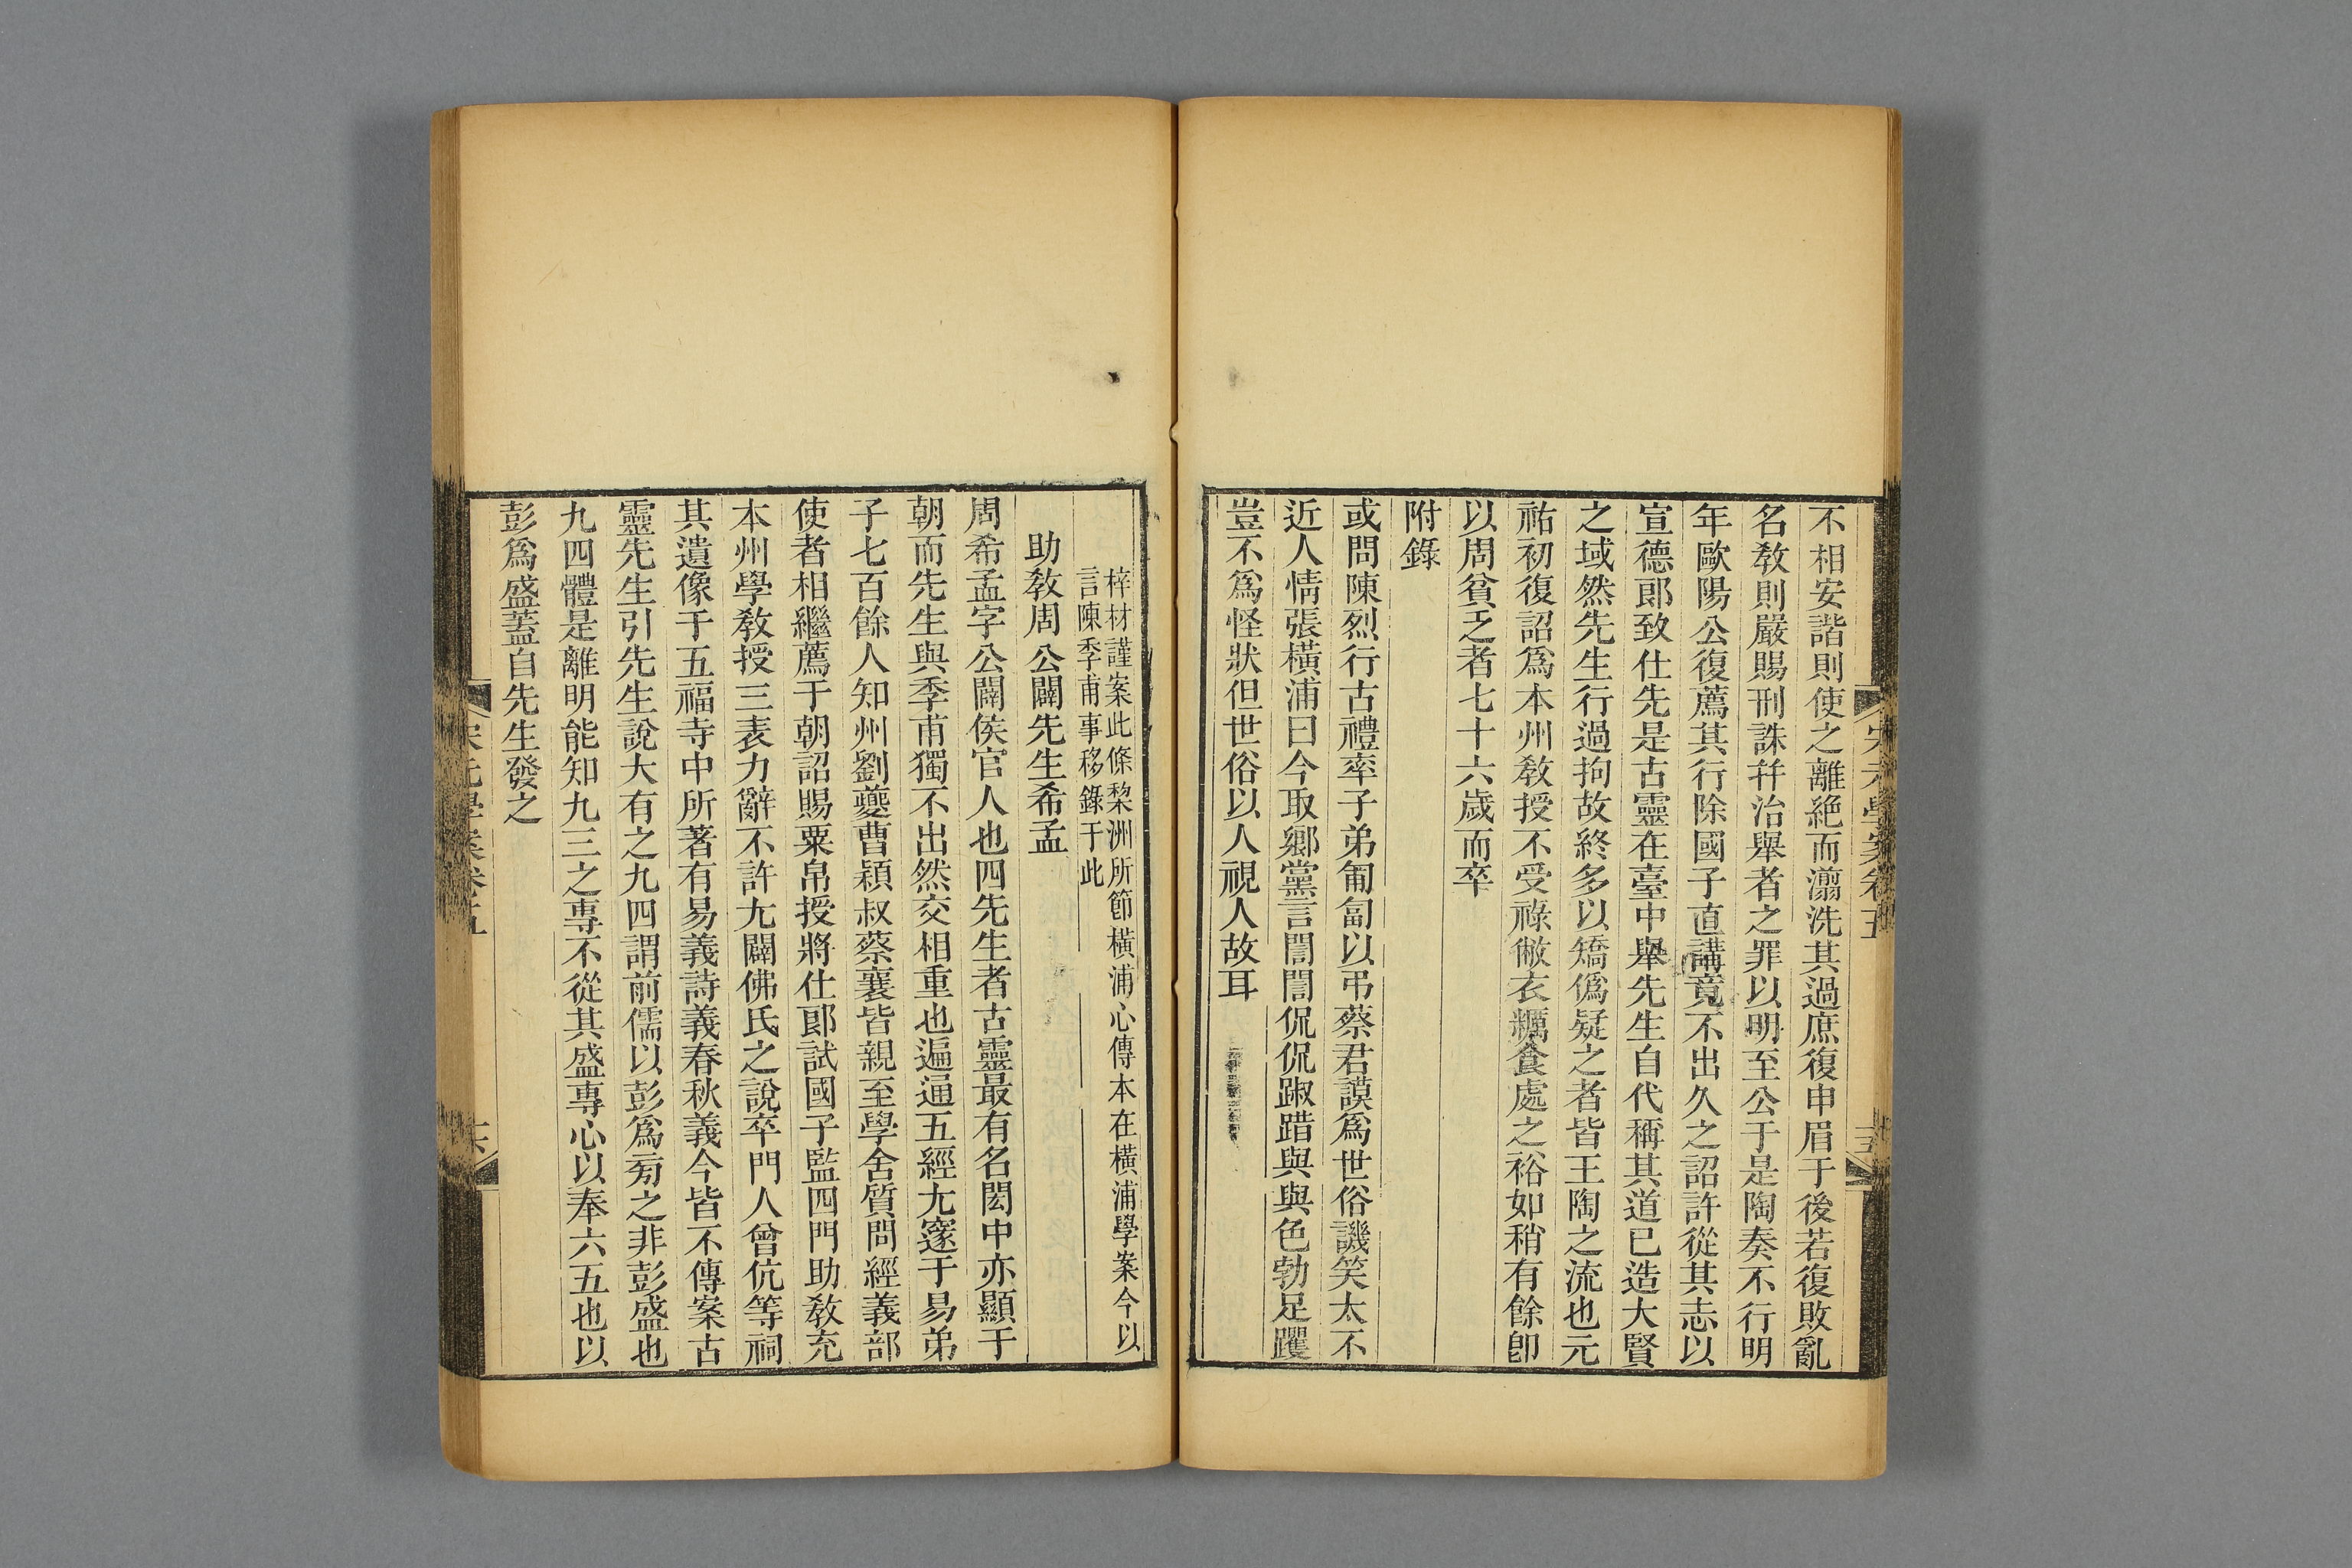 不相安諧則使之離絕而瀚洗其過庶復申眉于後若復敗亂
名敎則嚴賜刑誅幷治舉者之罪以明至公于是陶奏不行明
年歐陽公復薦其行除國子直講竟不出久之詔許從其志以
宣德郎致仕先是古靈在臺中舉先生自代稱其道已造大賢
之域然先生行過拘故終多以矯僞疑之者皆王陶之流也元
祐初復詔爲本州敎授不受祿敝衣糲食處之裕如稍有餘卽
以周貧乏者七十六歲而卒
附錄
或問陳烈行古禮率子弟匍匐以弔蔡君謨爲世俗譏笑太不
近人情張橫浦曰今取鄉黨言誾誾侃侃踧踖與與色勃足躩
豈不爲怪狀但世俗以人視人故耳
宋元學案卷五
梓材謹案此條棃洲所節橫浦心傳本在橫浦學案今以
言陳季甫事移錄于此
助敎周公闢先生希孟
周希孟字公闢侯官人也四先生者古靈最有名閎中亦顯于
朝而先生與季甫獨不出然交相重也遍通五經尤邃于易弟
子七百餘人知州劉夔曹穎叔蔡襄皆親至學舍質問經義部
使者相繼薦于朝詔賜粟帛授將仕郎試國子監四門助敎充
本州學敎授三表力辭不許尤闢佛氏之說卒門人曾伉等祠
其遺像于五福寺中所著有易義詩義春秋義今皆不傳案古
靈先生引先生說大有之九四謂前儒以彭爲旁之非彭盛也
九四體是離明能知九三之専不從其盛専心以奉六五也以
彭爲盛蓋自先生發之
宋元學案卷五